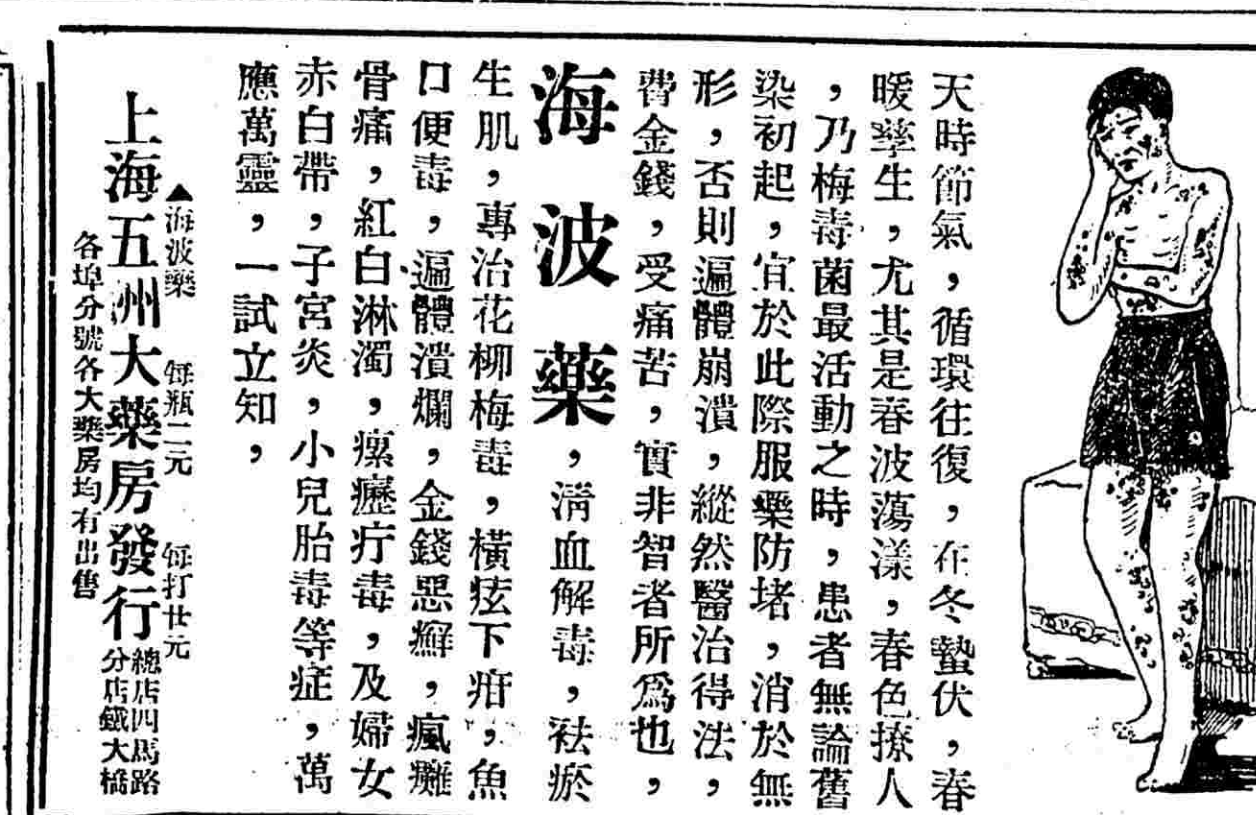 天時節氣，循環往復，在冬蟄伏，春
暖孳生，尤其是春波蕩漾，春色撩人
，乃梅毒菌最活動之時，患者無論舊
染初起，宜於此際服藥防堵，消於無
形，否則遍體崩潰，縱然醫治得法，
費金錢，受痛苦，實非智者所爲也，
海波藥，清血解毒，祛瘀
生肌，專治花柳梅毒，橫痃下疳，魚
口便毒，遍體潰爛，金錢惡癬，瘋癱
骨痛，紅白淋濁，瘰癧疔毒，及婦女
赤白帶，子宮炎，小兒胎毒等症，萬
應萬靈，一試立知，
▲海波藥　每瓶二元　每打廿元
上海五洲大藥房發行
總店四馬路
分店鐵大橋
各埠分號各大藥房均有出售